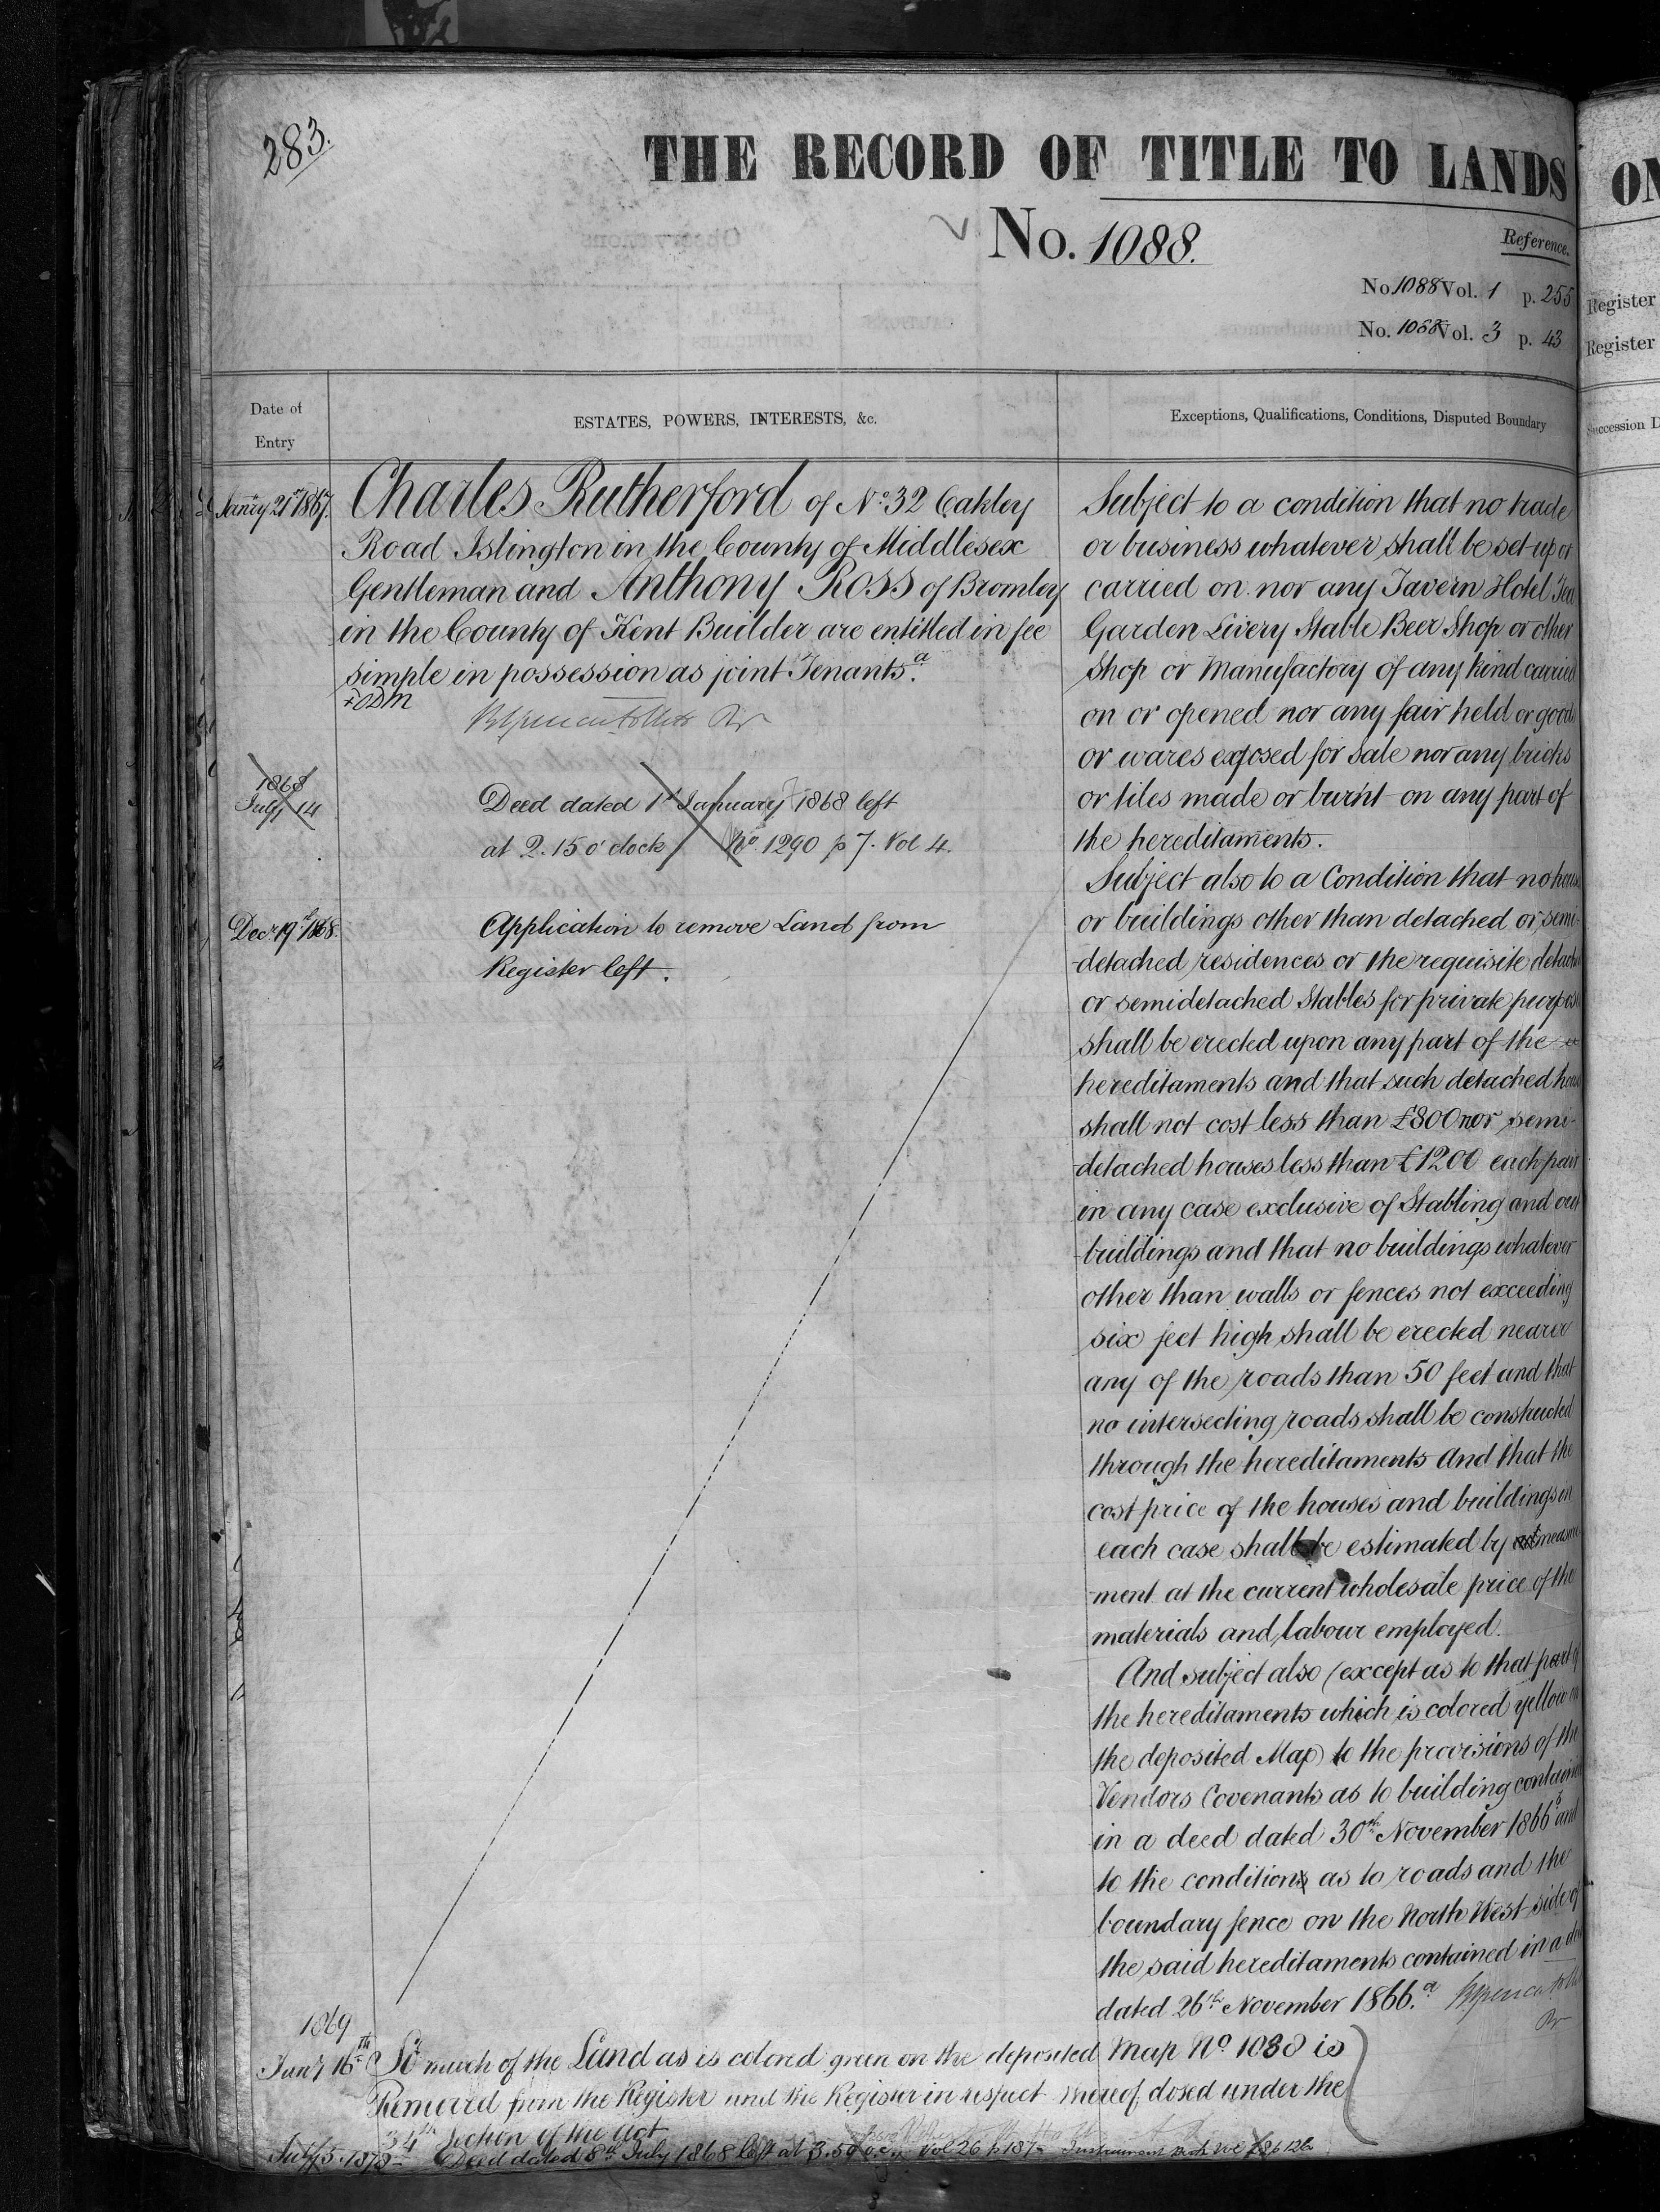 283.
THE RECORD OF TITLE TO LANDS
No. 1088.
Reference.
No 1088 Vol. 1 p. 255
No. 1088 Vol. 3 p. 43
Date of
Entry
ESTATES, POWERS, INTERESTS, &c.
Exceptions, Qualifications, Conditions, Disputed Boundary
Janry 21st 1867.
Charles Rutherford of No. 32 Oakley
Road Islington in the County of Middlesex
Gentleman and Anthony Ross of Bromley
in the County of Kent Builder are entitled in fee
simple in possession as joint Tenants.a
1868
July 14
Deed dated 1st January 1868 left
at 2.15 o'clock No 1290 p 7. Vol 4.
Decr 19th 1868.
Application to remove Land from
Register left.
Subject to a condition that no trade
or business whatever shall be set up or
carried on nor any Tavern Hotel Tea
Garden Livery Stable Beer Shop or other
Shop or Manufactory of any kind carried
on or opened nor any fair held or goods
or wares exposed for sale nor any bricks
or tiles made or burnt on any part of
the hereditaments.
Subject also to a Condition that no house
or buildings other than detached or semi-
detached residences or the requisite detached
or semidetached Stables for private purposes
shall be erected upon any part of the
hereditaments and that such detached house
shall not cost less than £800 nor semi-
detached houses less than £1200 each pair
in any case exclusive of Stabling and out
buildings and that no buildings whatever
other than walls or fences not exceeding
six feet high shall be erected nearer
any of the roads than 50 feet and that
no intersecting roads shall be constructed
through the hereditaments And that the
cost price of the houses and buildings in
each case shall be estimated by measure
ment at the current wholesale price of the
materials and labour employed.
And subject also (except as to that part of
the hereditaments which is colored yellow on
the deposited Map) to the provisions of the
Vendors Covenants as to building contained
in a deed dated 30th November 1866 a and
to the conditions as to roads and the
boundary fence on the North West side of
the said hereditaments contained in a deed
dated 26th November 1866.a
1869
Jany 16th So much of the Land as is colored green on the deposited Map No. 1088 is
Removed from the Register and the Register in respect thereof closed under the
34th Section of the Act
July 5. 1878 Deed dated 8th July 1868 left at 3.59 Vol 26 p 187
ON
Register
Register
Succession D